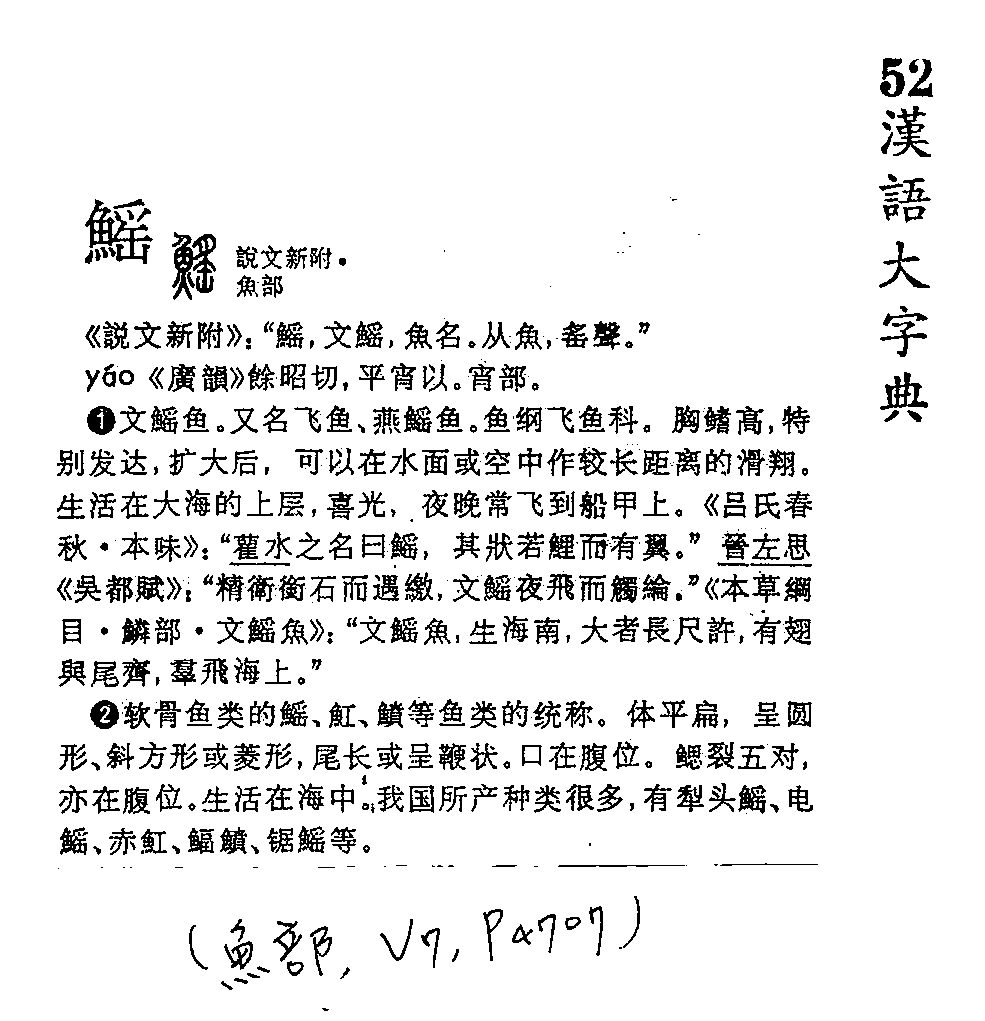 52漢語大字典
鰩 鰩 說文新附・
魚部
《説文新附》：“鰩，文鰩，魚名。从魚，䍃聲。”
yáo 《廣韻》餘昭切，平宵以。宵部。
❶文鳐鱼。又名飞鱼、燕鳐鱼。鱼纲飞鱼科。胸鳍高，特
别发达，扩大后，可以在水面或空中作较长距离的滑翔。
生活在大海的上层，喜光，夜晚常飞到船甲上。《吕氏春
秋・本味》：“雚水之名曰鰩，其狀若鯉而有翼。”晉左思
《吳都賦》：“精衛銜石而遇繳，文鰩夜飛而觸綸。”《本草綱
目・鱗部・文鰩魚》：“文鰩魚，生海南，大者長尺許，有翅
與尾齊，羣飛海上。”
❷软骨鱼类的鳐、魟、鱝等鱼类的统称。体平扁，呈圆
形、斜方形或菱形，尾长或呈鞭状。口在腹位。鳃裂五对，
亦在腹位。生活在海中。我国所产种类很多，有犁头鳐、电
鳐、赤魟、鲾鱝、锯鳐等。
(魚部, V7, P4707)